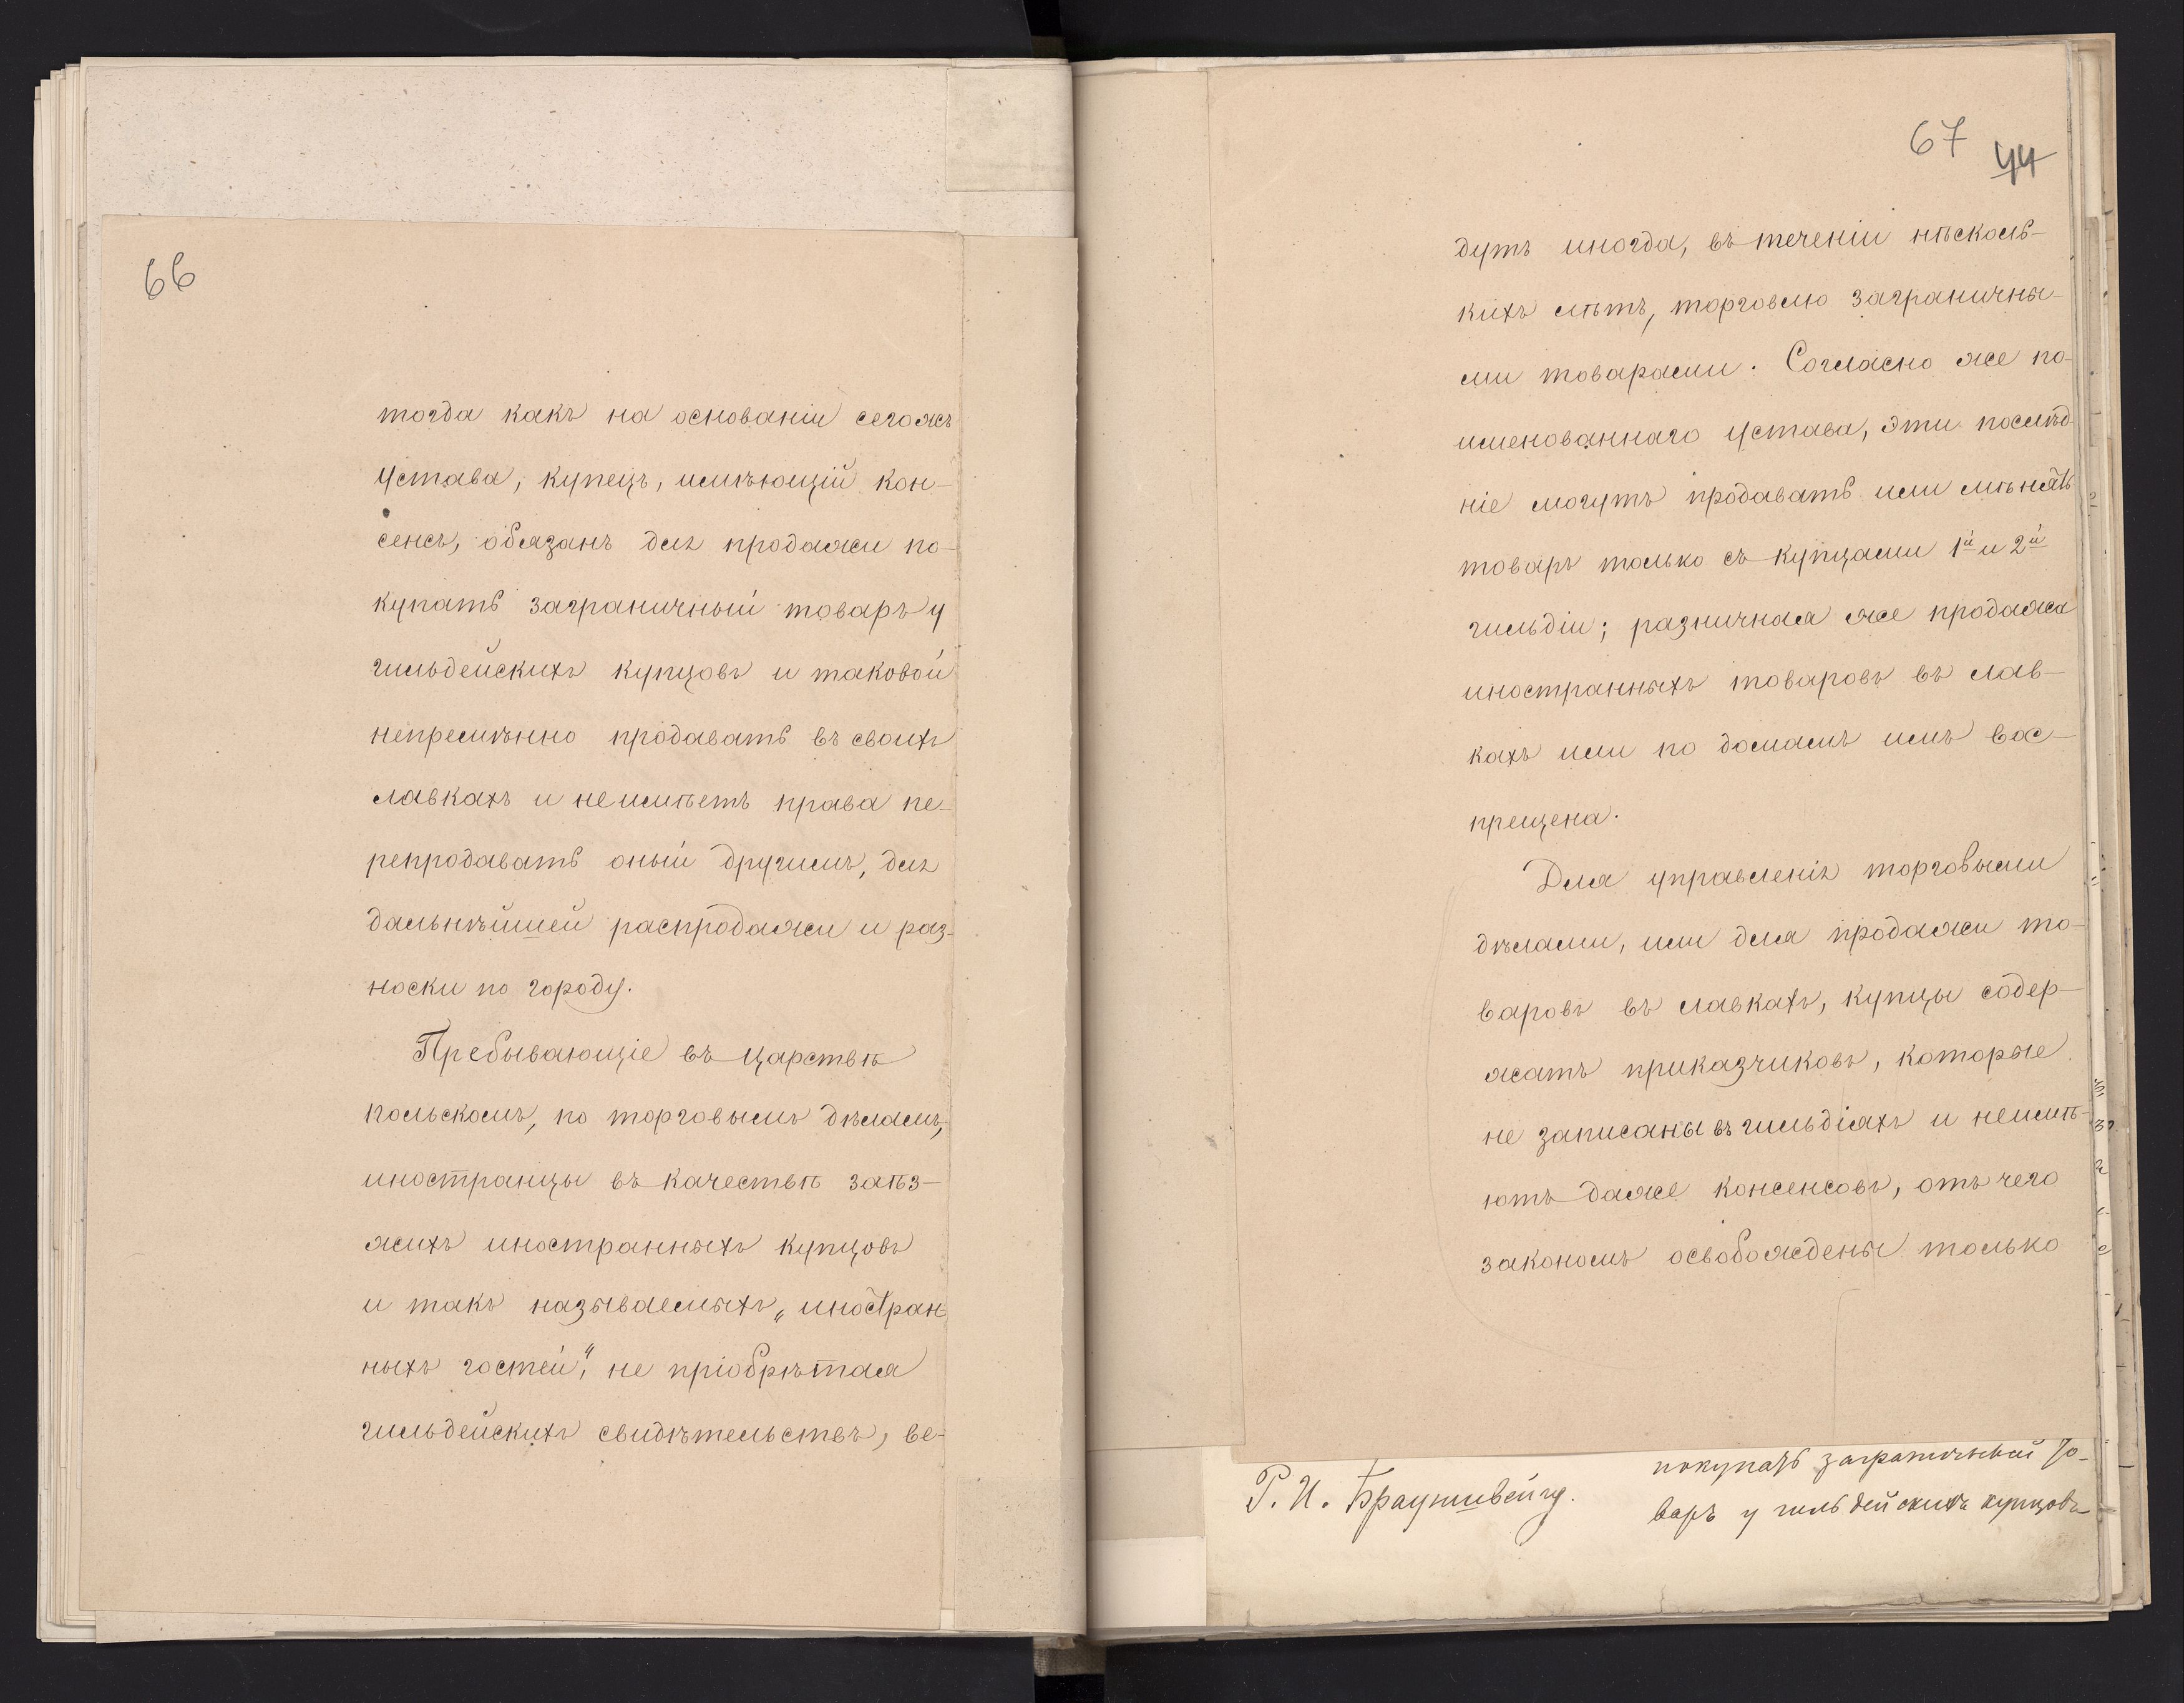 66
тогда какъ на основаніи сегожъ
Устава, купецъ, имѣющій кон-
сенсъ, обязанъ для продажи по-
купать заграничный товаръ у
гильдейскихъ купцовъ и таковой
непремѣнно продавать въ своихъ
лавкахъ и неимѣетъ права пе-
репродавать оный другимъ, для
дальнѣйшей распродажи и раз-
носки по городу.
Пребывающіе въ Царствѣ
Польскомъ, по торговымъ дѣламъ,
иностранцы въ качествѣ заѣз-
жихъ иностранныхъ купцовъ
и такъ называемыхъ „иностран-
ныхъ гостей", не пріобрѣтая
гильдейскихъ свидѣтельствъ, ве-
67 44
дутъ иногда, въ теченіи нѣсколь-
кихъ лѣтъ, торговлю заграничны-
ми товарами. Согласно же по-
именованнаго Устава, эти послѣд-
ніе могутъ продавать или мѣнять
товаръ только съ купцами 1й и 2й
гильдіи; разничная же продажа
иностранныхъ товаровъ въ лав-
кахъ или по домамъ имъ вос-
прещена.
Для управленія торговыми
дѣлами, или для продажи то-
варовъ въ лавкахъ, купцы содер-
жатъ приказчиковъ, которые
не записаны въ гильдіяхъ и неимѣ-
ютъ даже консенсовъ, отъ чего
закономъ освобождены только
Р. И. Брауншвейгу.
покупать заграничный то-
варъ у гильдейскихъ купцовъ